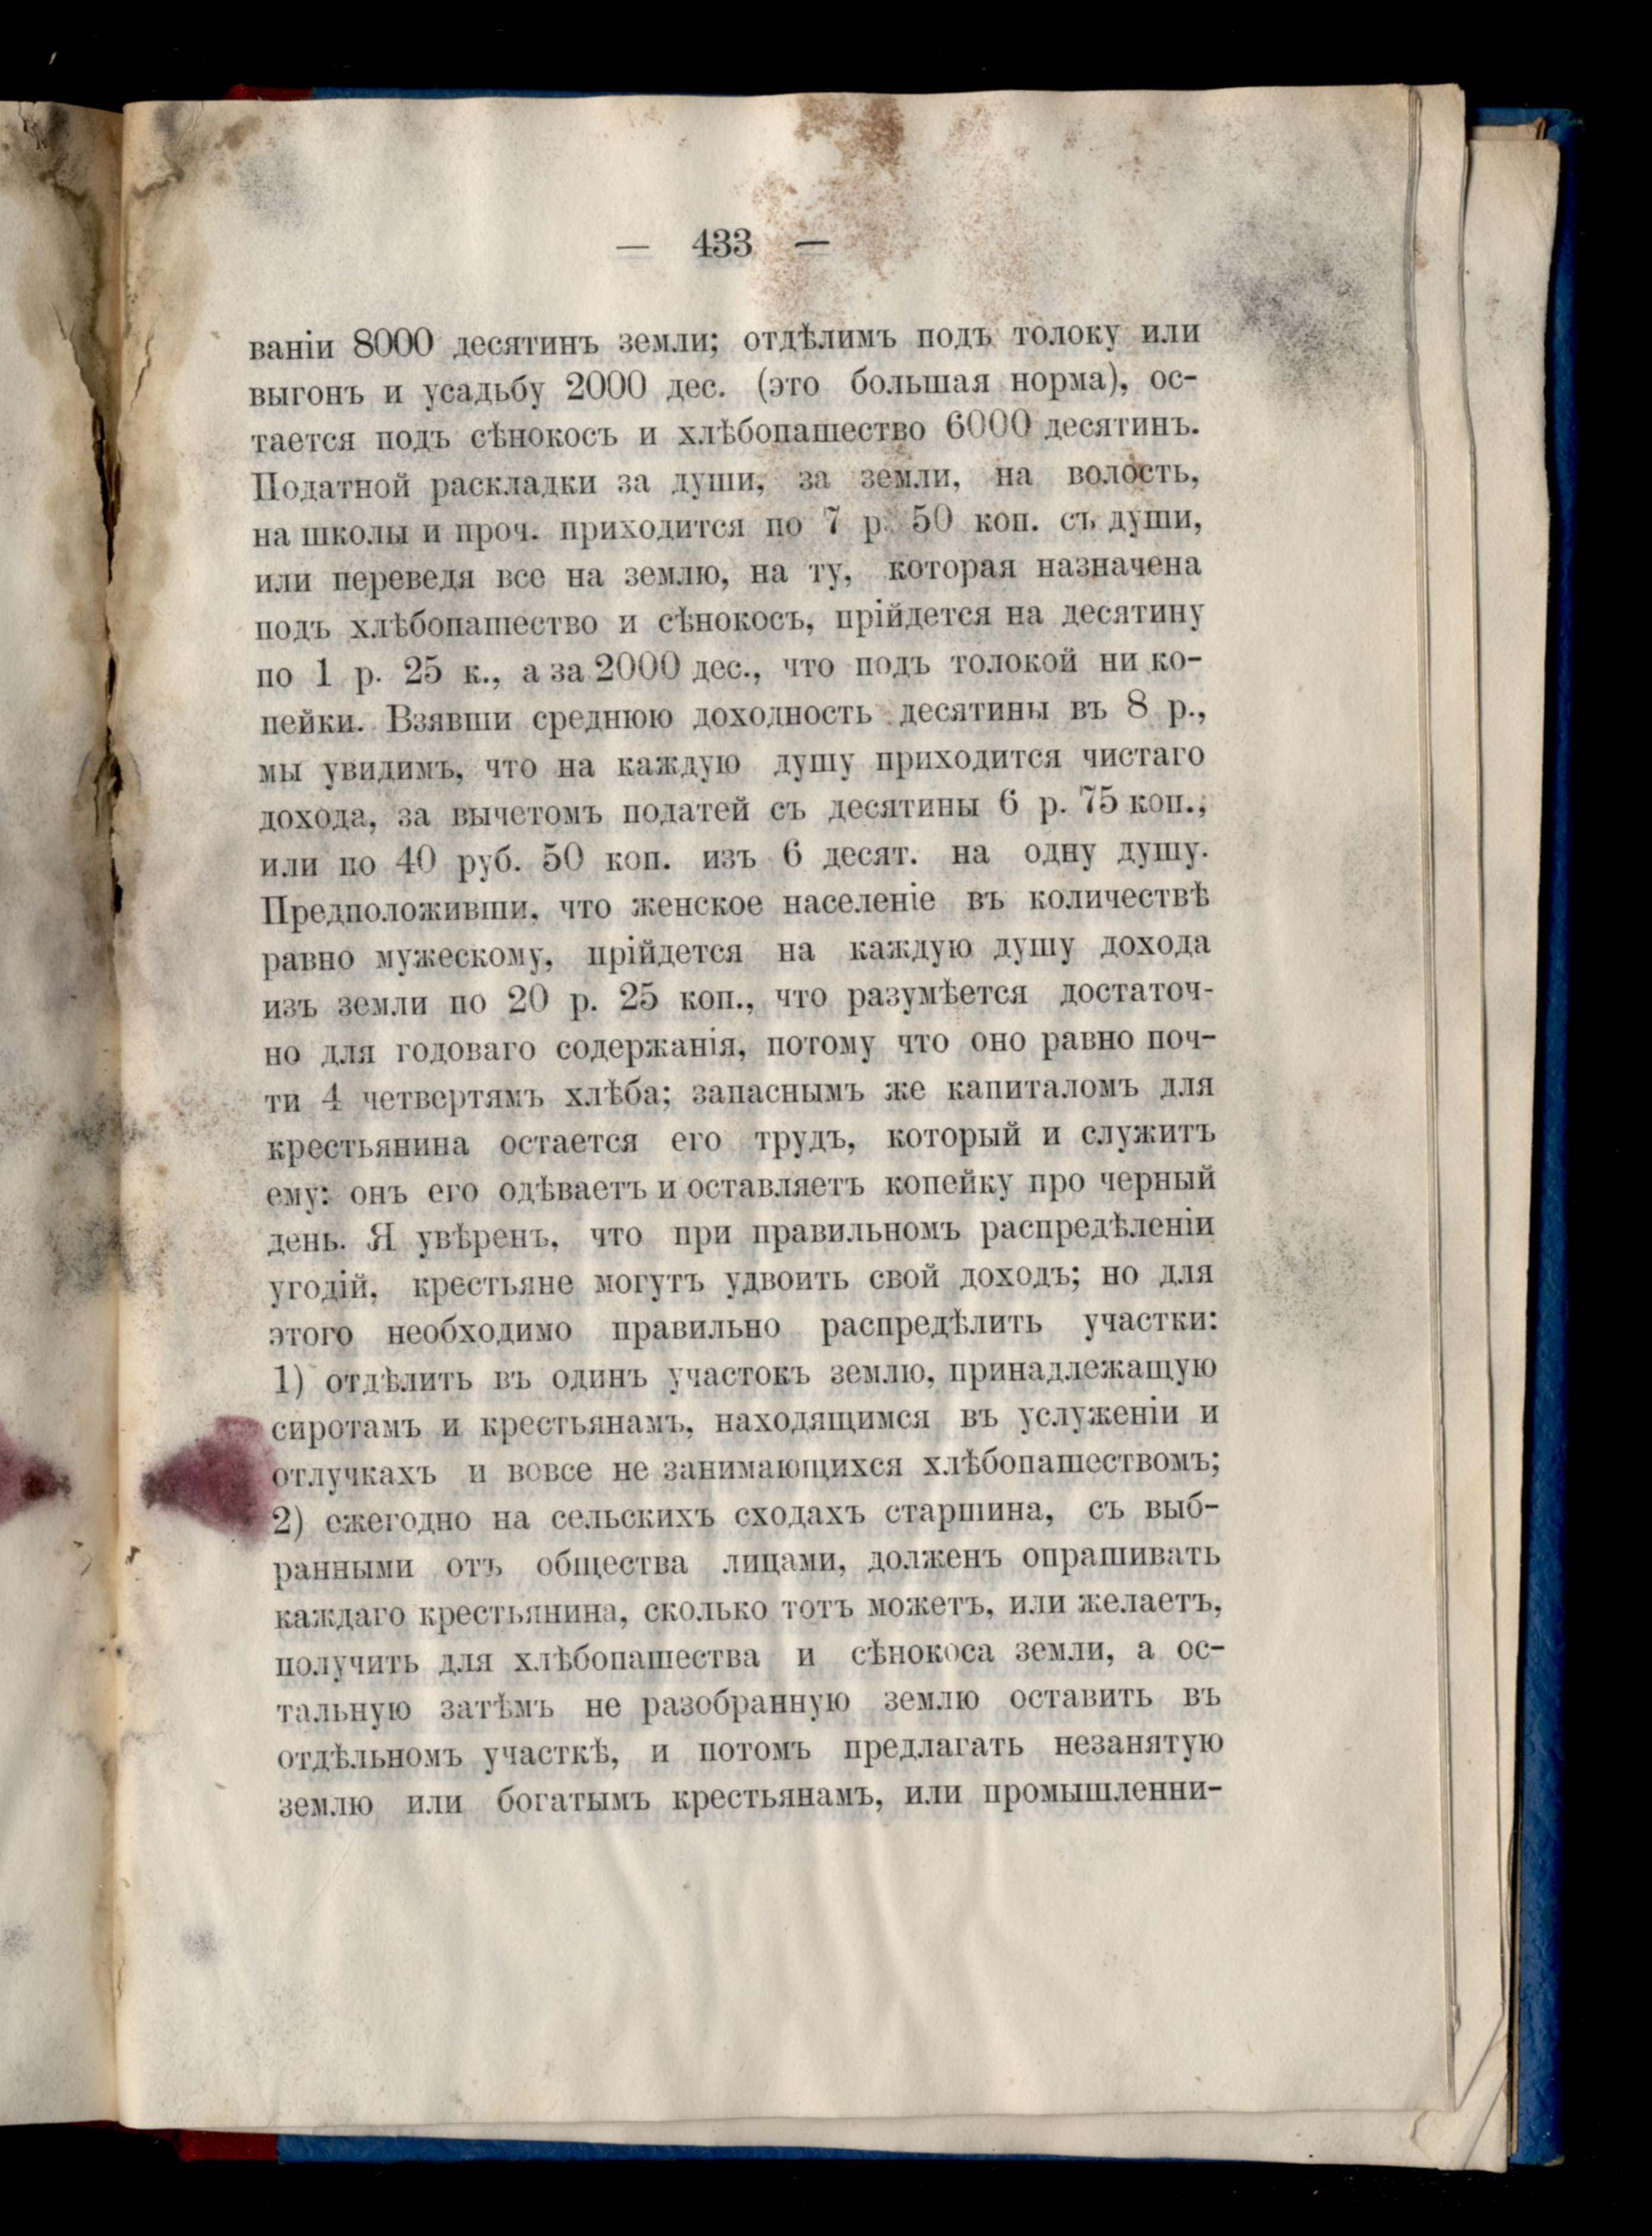 — 433 —
ваніи 8000 десятинъ земли; отдѣлимъ подъ толоку или
выгонъ и усадьбу 2000 дес. (это большая норма), ос-
тается подъ сѣнокосъ и хлѣбопашество 6000 десятинъ.
Податной раскладки за души, за земли, на волость,
на школы и проч. приходится по 7 р. 50 коп. съ души,
или переведя все на землю, на ту, которая назначена
подъ хлѣбопашество и сѣнокосъ, прійдется на десятину
по 1 р. 25 к., а за 2000 дес., что подъ толокой ни ко-
пейки. Взявши среднюю доходность десятины въ 8 р.,
мы увидимъ, что на каждую душу приходится чистаго
дохода, за вычетомъ податей съ десятины 6 р. 75 коп.,
или по 40 руб. 50 коп. изъ 6 десят. на одну душу.
Предположивши, что женское населеніе въ количествѣ
равно мужескому, прійдется на каждую душу дохода
изъ земли по 20 р. 25 коп., что разумѣется достаточ-
но для годоваго содержанія, потому что оно равно поч-
ти 4 четвертямъ хлѣба; запаснымъ же капиталомъ для
крестьянина остается его трудъ, который и служитъ
ему: онъ его одѣваетъ и оставляетъ копейку про черный
день. Я увѣренъ, что при правильномъ распредѣленіи
угодій, крестьяне могутъ удвоить свой доходъ; но для
этого необходимо правильно распредѣлить участки:
1) отдѣлить въ одинъ участокъ землю, принадлежащую
сиротамъ и крестьянамъ, находящимся въ услуженіи и
отлучкахъ и вовсе не занимающихся хлѣбопашествомъ;
2) ежегодно на сельскихъ сходахъ старшина, съ выб-
ранными отъ общества лицами, долженъ опрашивать
каждаго крестьянина, сколько тотъ можетъ, или желаетъ,
получить для хлѣбопашества и сѣнокоса земли, а ос-
тальную затѣмъ не разобранную землю оставить въ
отдѣльномъ участкѣ, и потомъ предлагать незанятую
землю или богатымъ крестьянамъ, или промышленни-